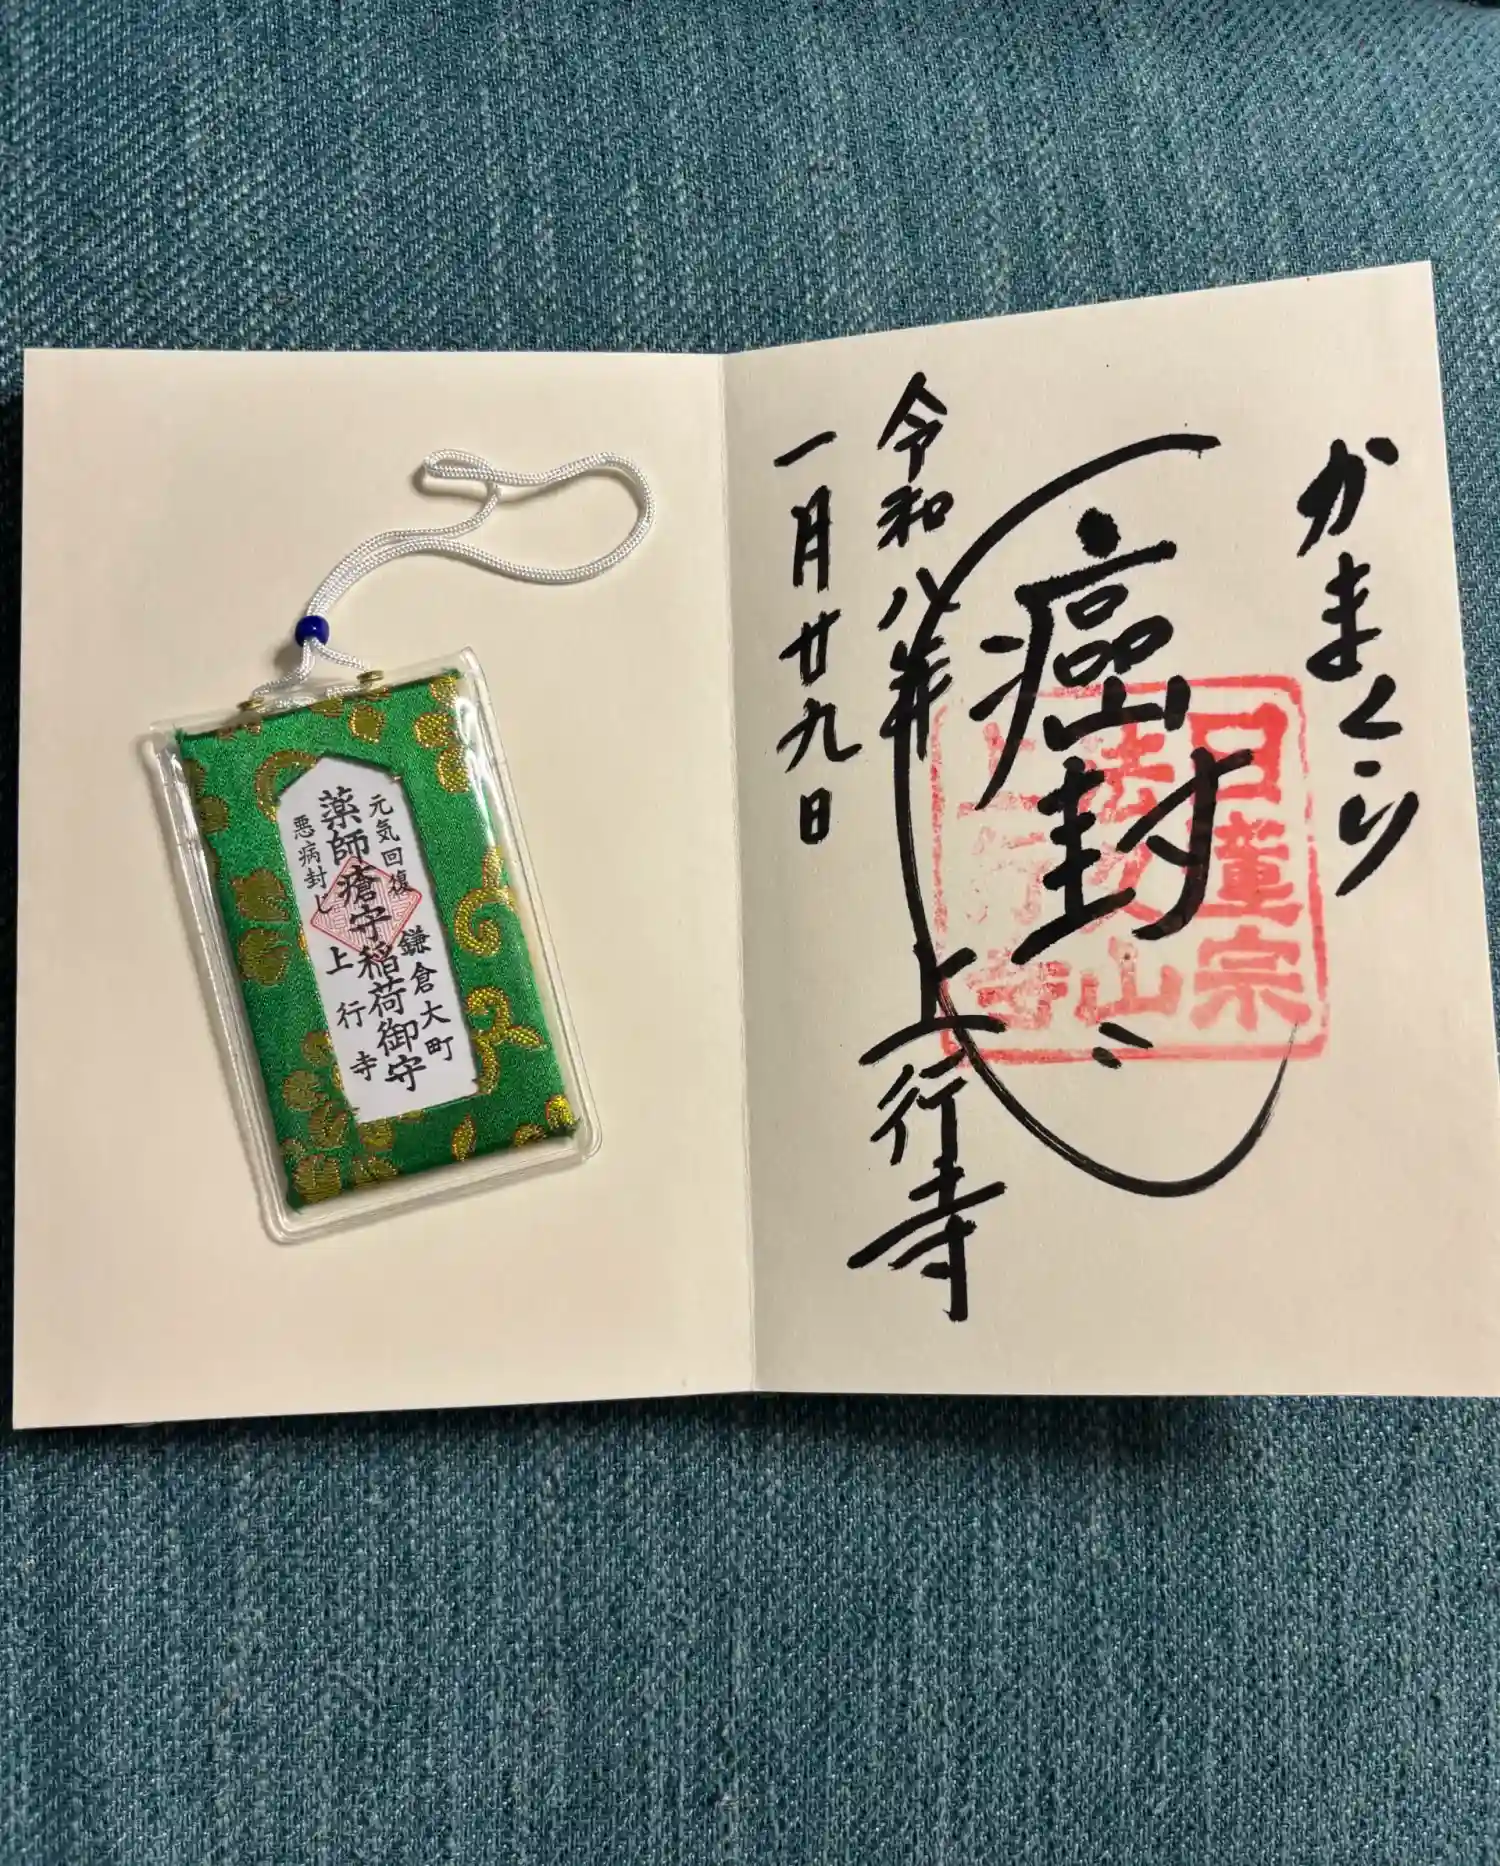 かまくら
癌封じ
上行寺
令和八年
一月廿九日
日蓮宗
法久山
上行寺
元気回復
鎌倉大町
薬師瘡守稲荷御守
悪病封じ
上行寺